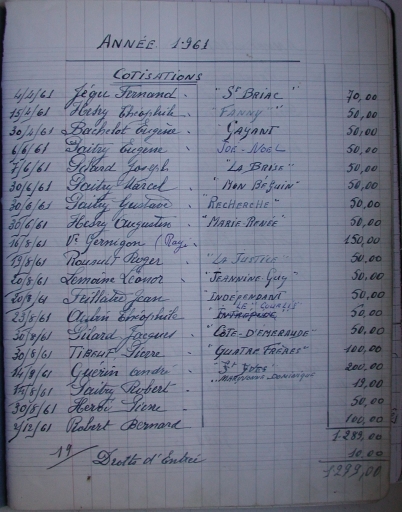 ANNÉE 1961
COTISATIONS
4/4/61 Jégu Fernand "St BRIAC" 70,00
15/4/61 Henry Théophile "FANNY" 50,00
30/4/61 Bachelot Eugène "GAYANT" 50,00
6/6/61 Eugène JOE-NOEL 50,00
7/6/61 Gilard Joseph "LA BRISE" 50,00
30/6/61 Marcel "MON BÉGUIN" 50,00
30/6/61 Gustave "RECHERCHE" 50,00
30/6/61 Henry Augustin "MARIE-RENÉE" 50,00
16/8/61 Ve 150,00
19/8/61 Roger "LA JUSTICE" 50,00
20/8/61 Lemoine Léonor "JEANNINE-GUY" 50,00
20/8/61 Jean "INDÉPENDANT" 50,00
23/8/61 Théophile "LE COURLIS" 50,00
30/8/61 Gilard Jacques "CÔTE-D'EMERAUDE" 50,00
30/8/61 Pierre "QUATRE FRÈRES" 100,00
14/8/61 Guérin André 200,00
Robert 19,00
30/8/61 50,00
2/12/61 Robert Bernard 100,00
1.289,00
19/ Droits d'Entrée 10,00
1299,00